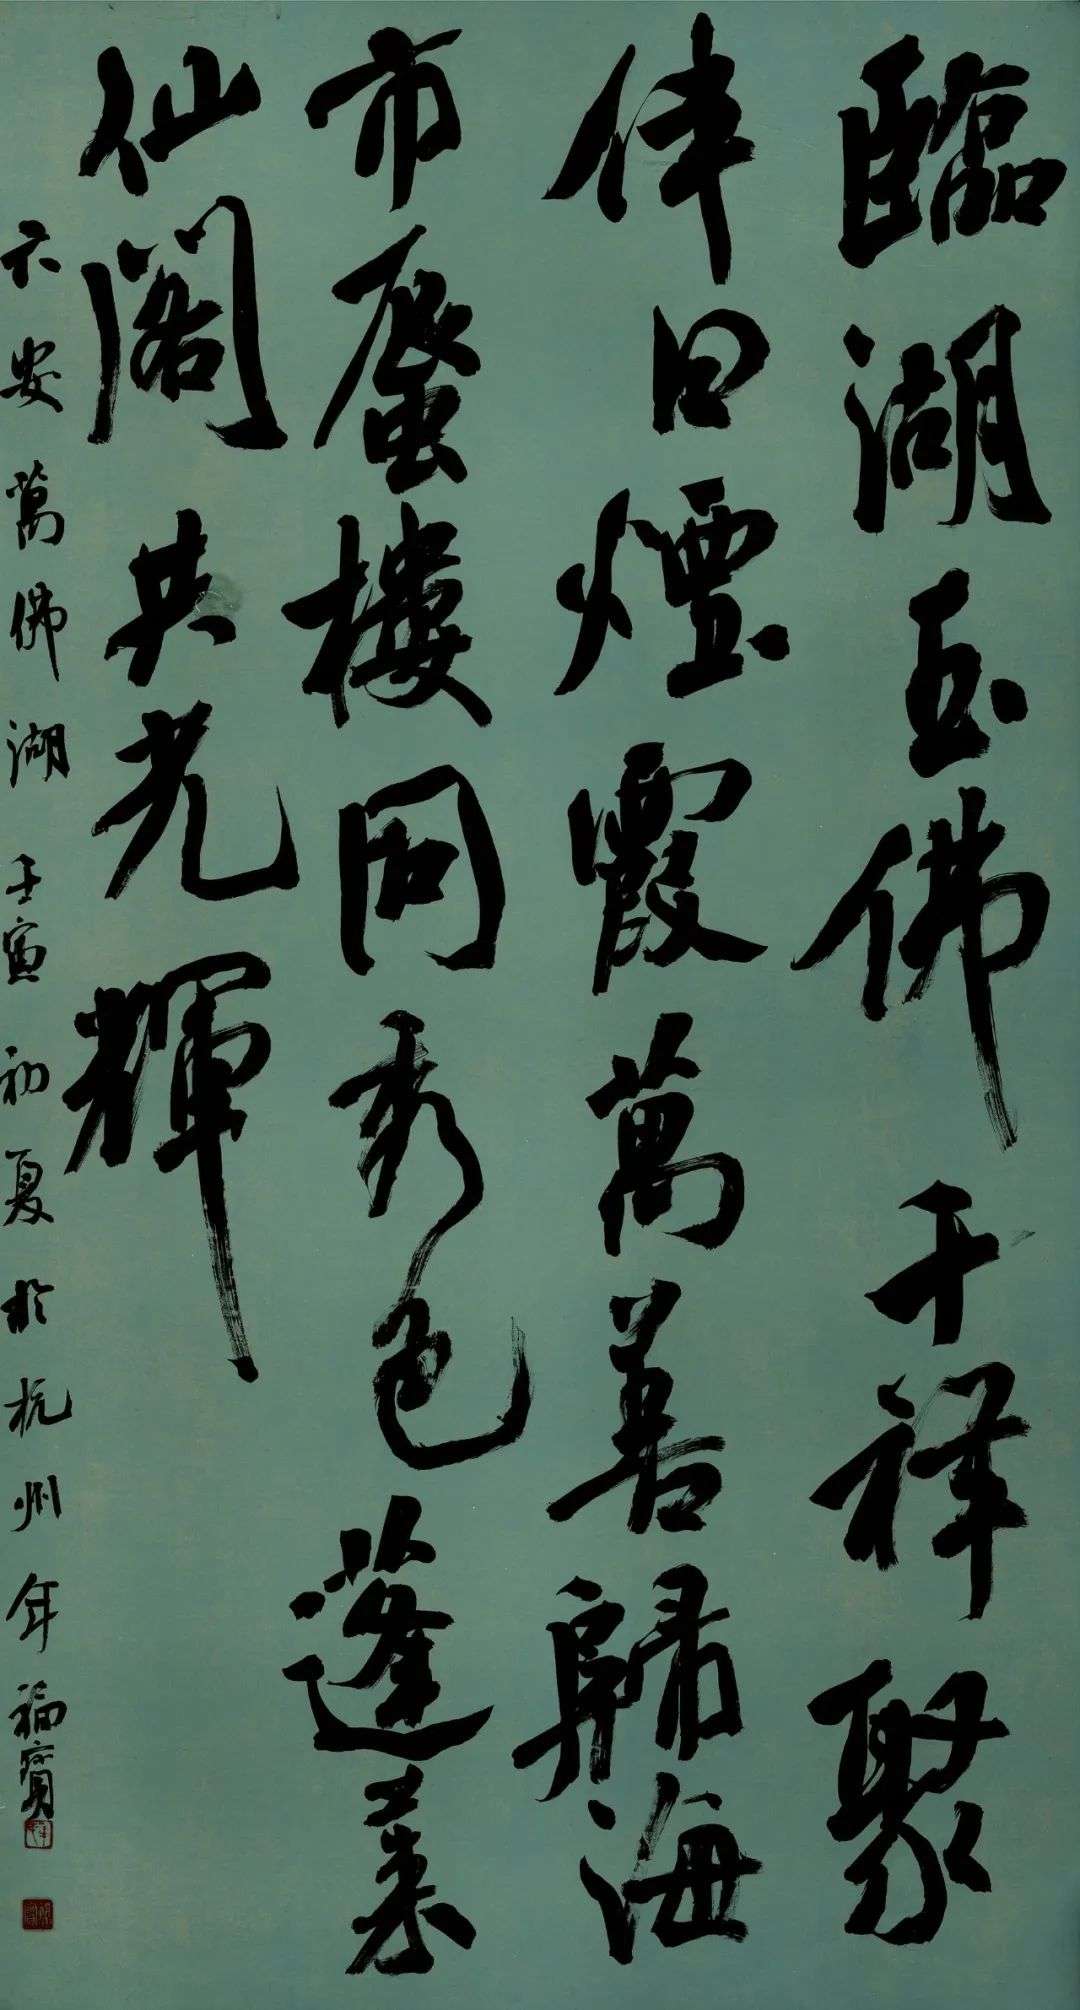 臨湖玉佛千祥聚
伴日煙霞萬善歸海
市蜃樓同秀色蓬萊
仙閣共光輝
六安萬佛湖壬寅初夏於杭州年福寶